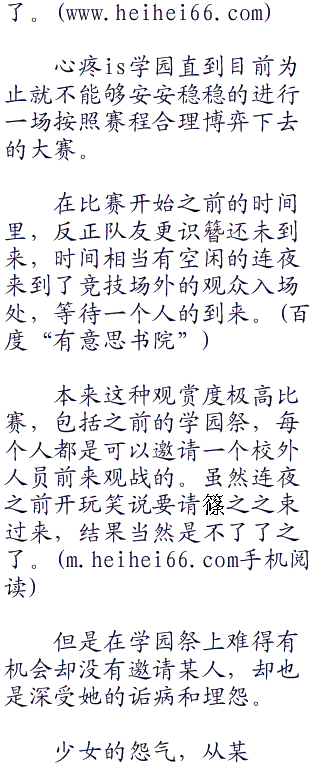 了。(www.heihei66.com)
心疼is学园直到目前为
止就不能够安安稳稳的进行
一场按照赛程合理博弈下去
的大赛。
在比赛开始之前的时间
里，反正队友更识簪还未到
来，时间相当有空闲的连夜
来到了竞技场外的观众入场
处，等待一个人的到来。(百
度“有意思书院”)
本来这种观赏度极高比
赛，包括之前的学园祭，每
个人都是可以邀请一个校外
人员前来观战的。虽然连夜
之前开玩笑说要请篠之之束
过来，结果当然是不了了之
了。(m.heihei66.com手机阅
读)
但是在学园祭上难得有
机会却没有邀请某人，却也
是深受她的诟病和埋怨。
少女的怨气，从某